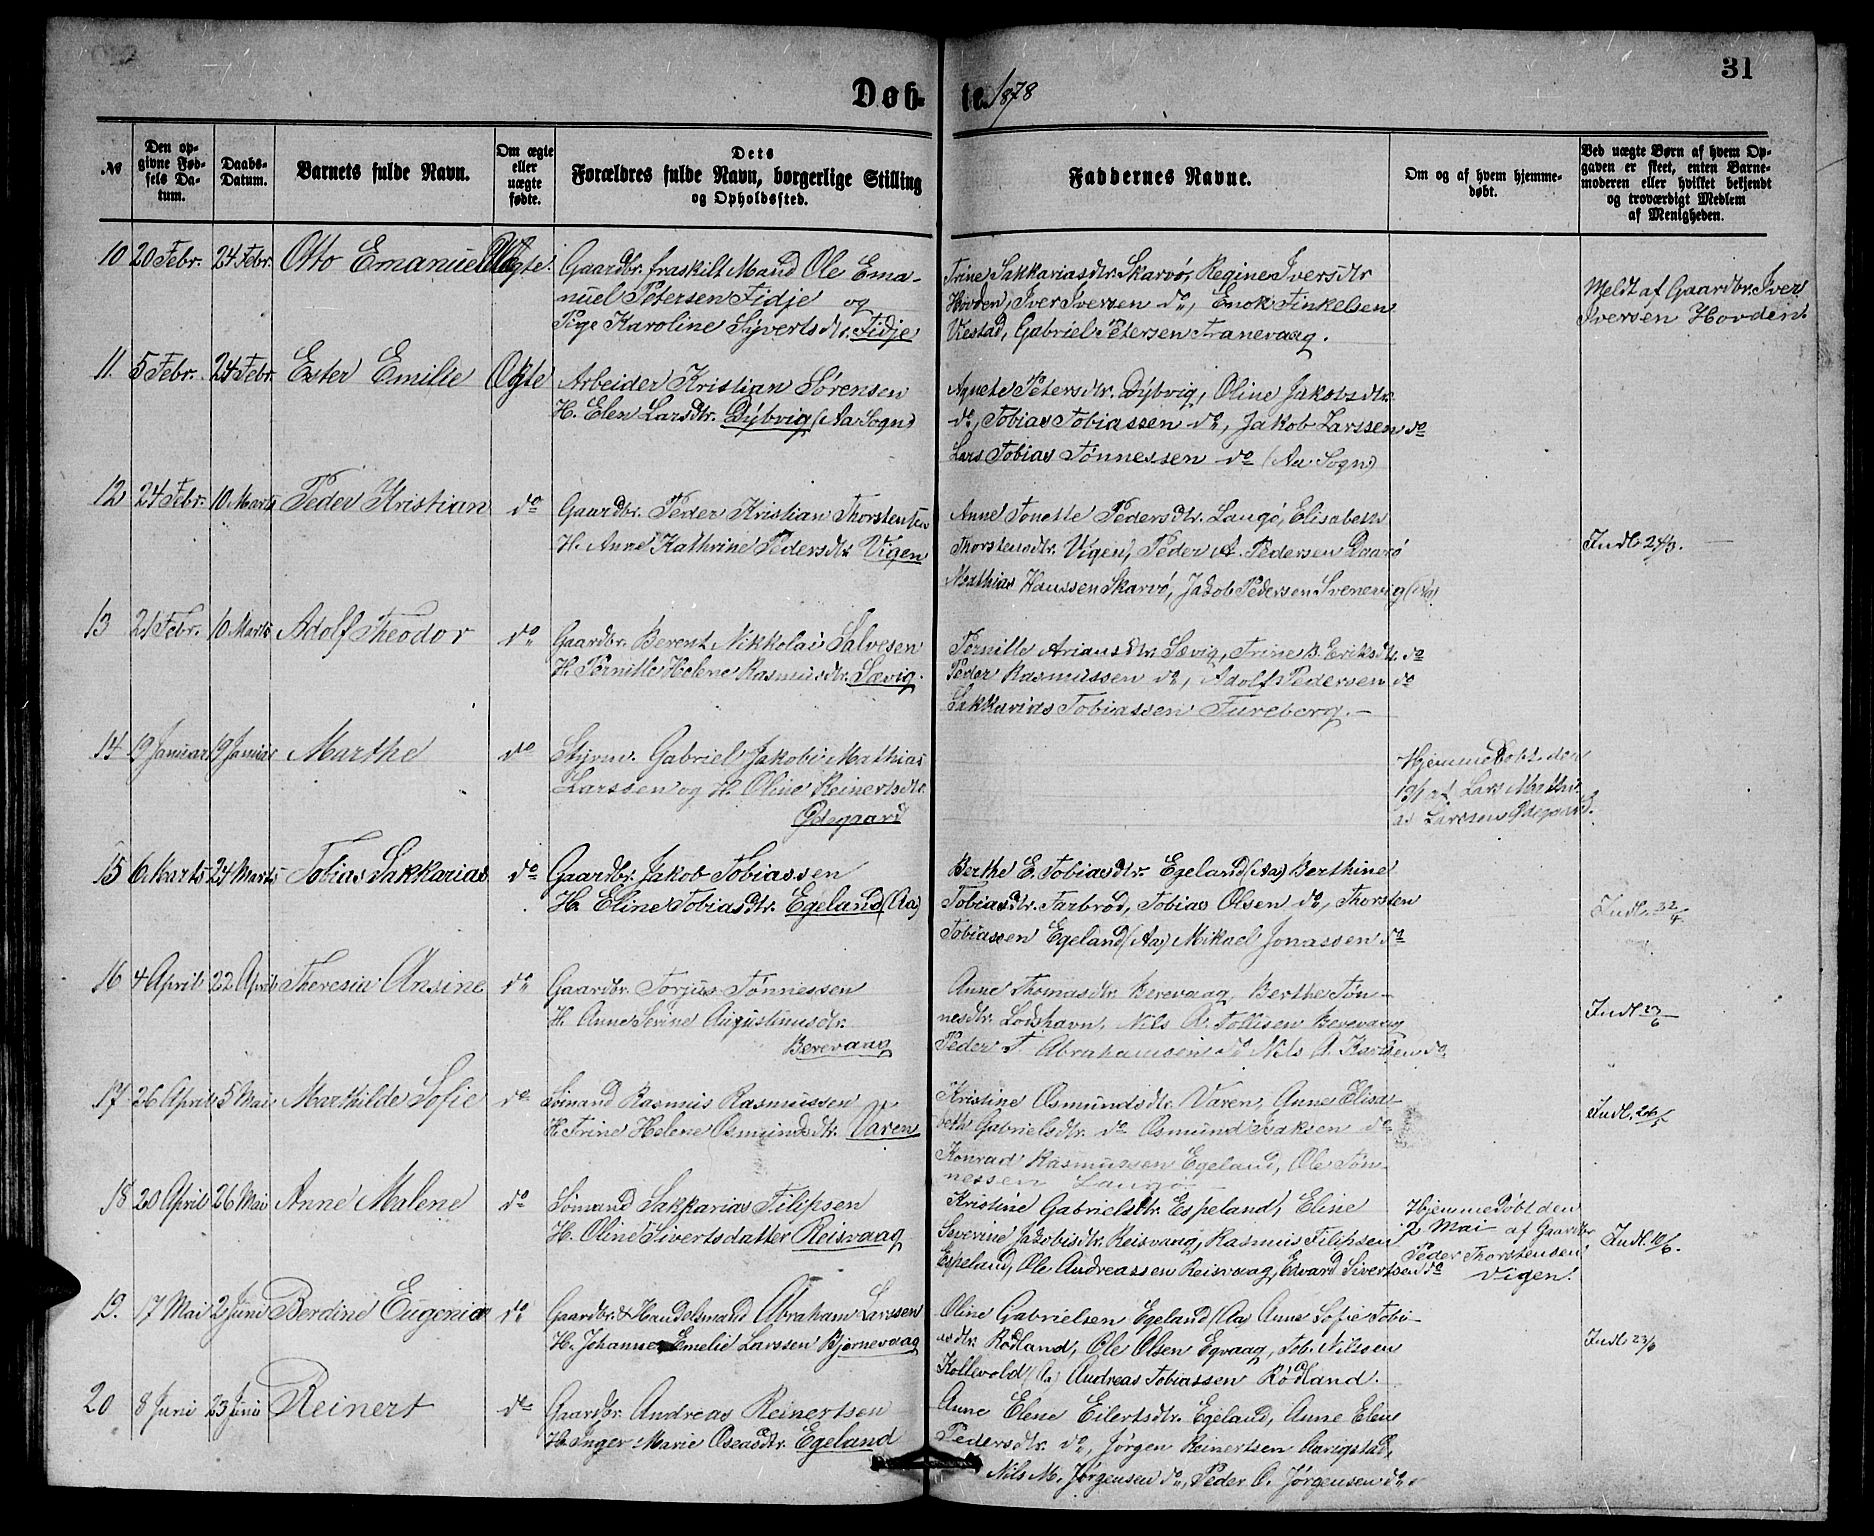 31
Døb-
te. 1878
№
Den op-
givne Fød-
sels Da-
tum.
Daabs-
Datum.
Barnets fulde Navn.
Om ægte
eller
uægte
fødte.
Dets
Forældres fulde Navn, borgerlige Stilling
og Opholdssted.
Faddernes Navne.
Om og af hvem hjemme-
døbt.
Ved uægte Børn af hvem Op-
gaven er skeet, enten Barne-
moderen eller hvilket bekjendt
og troværdigt Medlem
af Menigheden.
10 20 Febr. 24 Febr. Otto Emanuel Uægte.
Gaardbr. fraskilt Mand Ole Ema-
nuel Petersen Fidje og
Pige Karoline Syvertsdtr. Fidje
Trine Sakkariasdtr. Skarvø, Regine Iversdtr
Hovden, Iver Iversen do, Enok Finkelsen
Vestad, Gabriel Petersen Tranevaag.
Meldt af Gaardbr. Iver
Iversen Hovden.
11. 5 Febr. 24 Febr. Ester Emilie Ægte
Arbeider Kristian Sørensen
H. Elen Larsdtr. Dybvig (Aa Sogn)
Agnete Petersdtr. Dybvig, Oline Jakobsdtr.
do, Tobias Tobiassen do, Jakob Larssen do
Lars Tobias Tønnessen do (Aa Sogn)
12 24 Febr. 10 Marts Peder Kristian do
Gaardbr. Peder Kristian Thorstensen
H. Anne Kathrine Pedersdtr. Vigen
Anne Tonette Pedersdtr. Langø, Elisabeth
Thorstensdtr. Vigen, Peder A. Pedersen Daarø
Mathias Hanssen Skarvø, Jakob Pedersen Svenevig
Indl. 24/3.
13 21 Febr. 10 Marts Adolf Theodor do
Gaardbr. Berent Nikkolai Salvesen
H. Pernille Helene Rasmusdtr. Sævig.
Pernille Ariansdtr. Sævig, Trine B. Eriksdtr. do
Peder Rasmussen do, Adolf Pedersen do
Sakkarias Tobiassen Fureberg.
14 19 Januar 19 Januar Marthe do
Styrm. Gabriel Jakobi Mathias
Larssen og H. Oline Reinertsdtr.
Ødegaard
Hjemmedøbt den
19/1 af Lars Mathi-
as Larssen Ødegaard.
15 6 Marts 24 Marts Tobias Sakkarias do
Gaardbr. Jakob Tobiassen
H. Eline Tobiasdtr. Egeland (Aa)
Berthe E. Tobiasdtr. Egeland (Aa) Berthine
Tobiasdtr. Farbrød, Tobias Olsen do, Thorsten
Tobiassen Egeland (Aa) Mikael Jonassen do
Indl. 22/4.
16 4 April 22 April Theresia Ansine do
Gaardbr. Torjus Tønnessen
H. Anne Serine Augustinusdtr.
Berevaag
Anne Thomasdtr. Berevaag, Berthe Tøn-
nesdtr. Loshavn, Nils A. Tollisen Berevaag
Peder T. Abrahamsen do Nils A. Karlsen do
Indl 23/6
17 26 April 5 Mai Marthilde Sofie do
Sømand Rasmus Rasmussen
H. Trine Helene Osmundsdtr. Varen
Kristine Osmundsdtr. Varen, Anne Elisa-
beth Gabrielsdtr. do Osmund Isaksen do
Konrad Rasmussen Egeland, Ole Tøn-
nessen Langø
Indl. 26/5
18 20 April 26 Mai Anne Malene do
Sømand Sakkarias Filipsen
H. Oline Sivertsdatter Reisvaag
Kristine Gabrielsdtr. Espeland, Eline
Severine Jakobisdtr. Reisvaag, Rasmus Filipsen
Espeland, Ole Andreassen Reisvaag, Edvard Sivertsen do
Hjemmedøbt den
2 Mai af Gaardbr
Peder Thorstensen
Vigen.
Indl. 10/6.
19. 17 Mai 2 Juni Berdine Eugenia do
Gaardbr. & Handelsmand Abraham Larssen
H. Johanne Emelie Larssen Bjørnevaag
Oline Gabrielsen Egeland (Aa) Anne Sofie Tobi-
asdtr. Rødland, Ole Olsen Egvaag, Tob. Nilssen
Kollevold (Aa) Andreas Tobiassen Rødland.
Indl 23/6
20 8 Juni 23 Juni Reinert do
Gaardbr. Andreas Reinertsen
H. Inger Marie Oseasdtr. Egeland
Anne Elene Eilertsdtr. Egeland, Anne Elene
Pedersdtr. do, Jørgen Reinertsen Aarigstad,
Nils M. Jørgensen do, Peder O. Jørgensen do